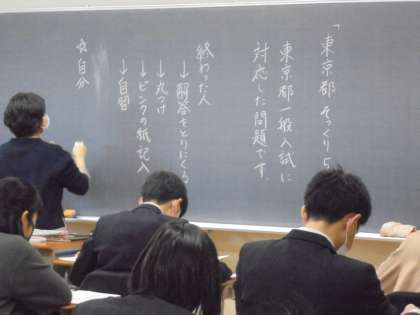 「東京都 そっくり5
東京都一般入試に
対応した問題です。
終わった人
↓解答をとりにくる
↓丸つけ
↓ピンクの紙記入
↓自習
☆自分